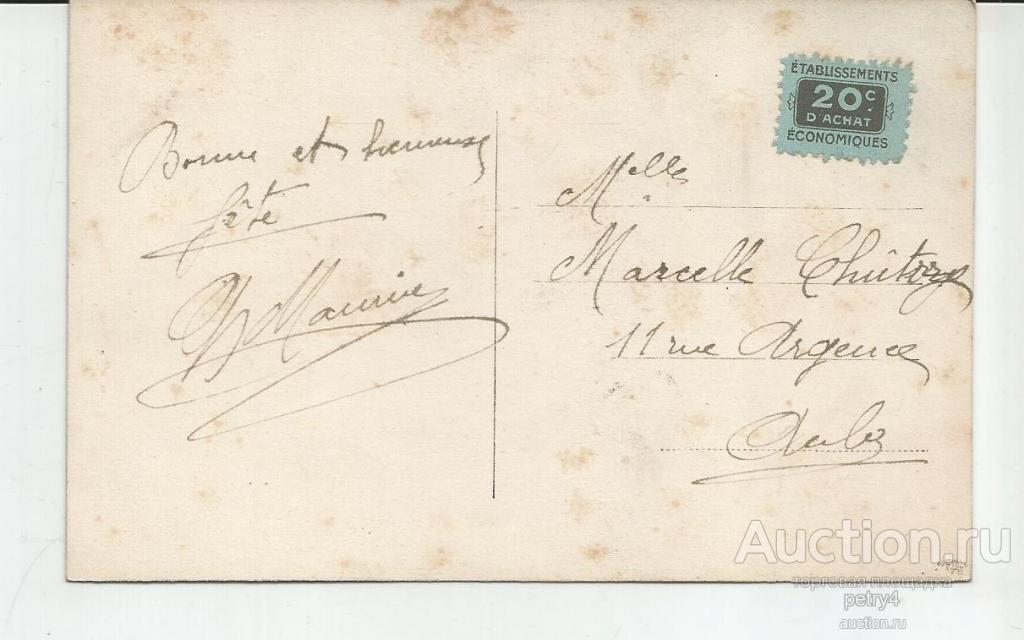 Bonne et heureuse
fête
Maurice
ÉTABLISSEMENTS
20c.
D'ACHAT
ÉCONOMIQUES
Melle
Marcelle
11 rue Argence
Auction.ru
торговая площадка
petry4
auction.ru